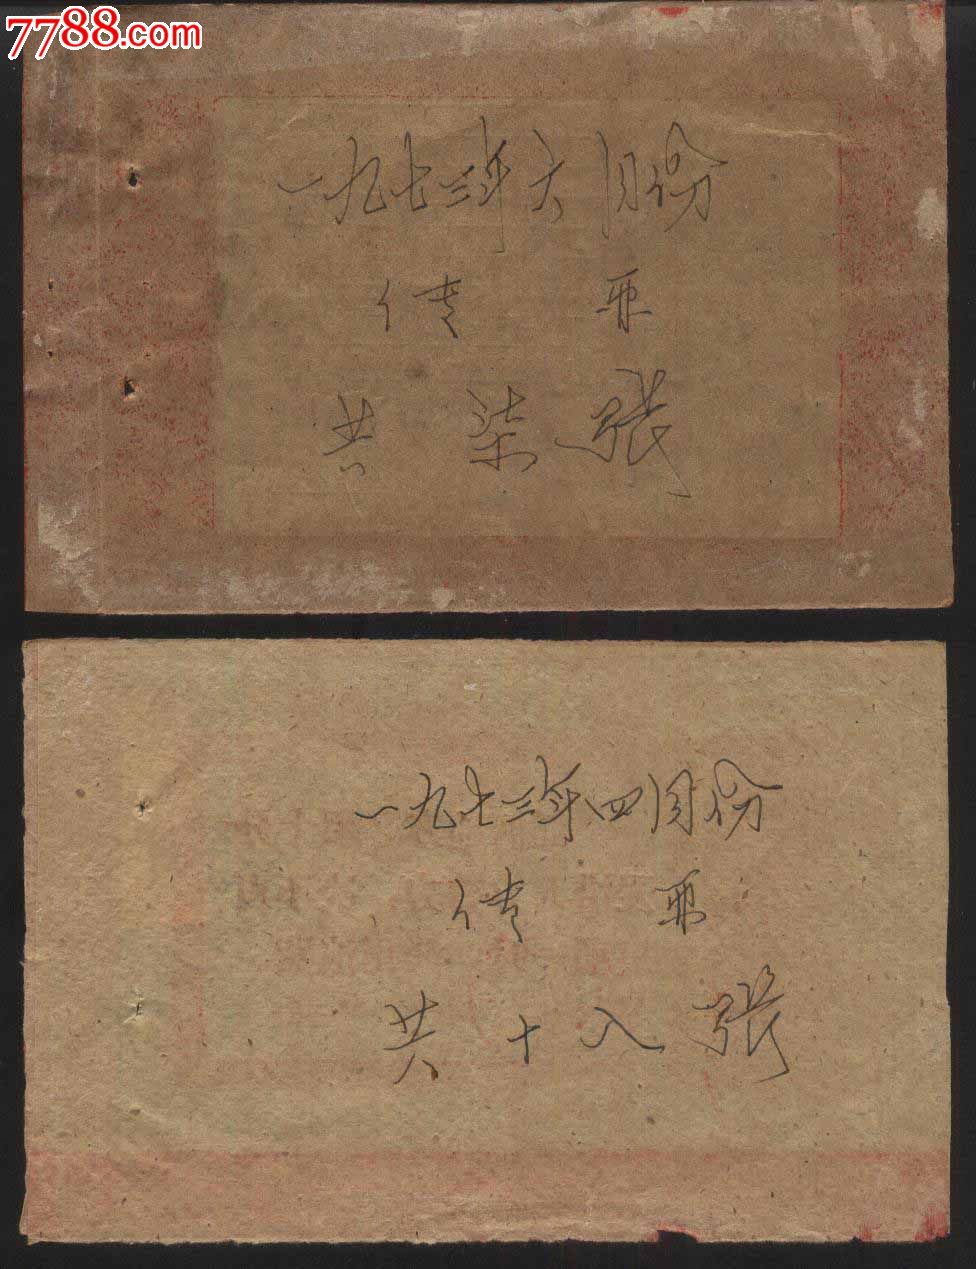 7788.com
一九七三年六月份
传票
共柒张
一九七三年四月份
传票
共十八张